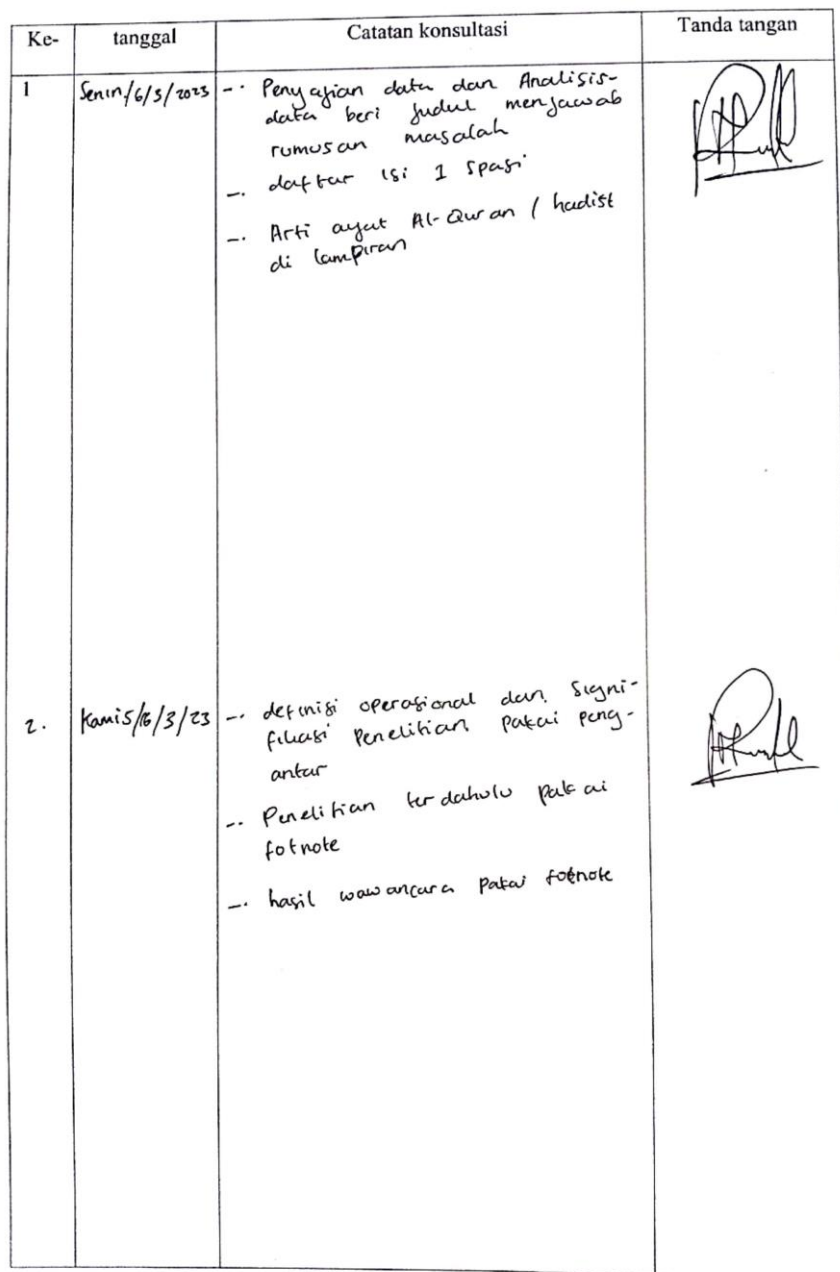 Ke- tanggal Catatan konsultasi Tanda tangan
1 Senin/6/3/2023 -. Penyajian data dan Analisis-
data beri judul menjawab
rumusan masalah
-. daftar isi 1 spasi
-. Arti ayat Al-Quran / hadist
di lampiran
2. Kamis/16/3/23 -. definisi operasional dan Signi-
fikasi Penelitian pakai peng-
antar
-. Penelitian terdahulu pakai
fotnote
-. hasil wawancara pakai fotnote